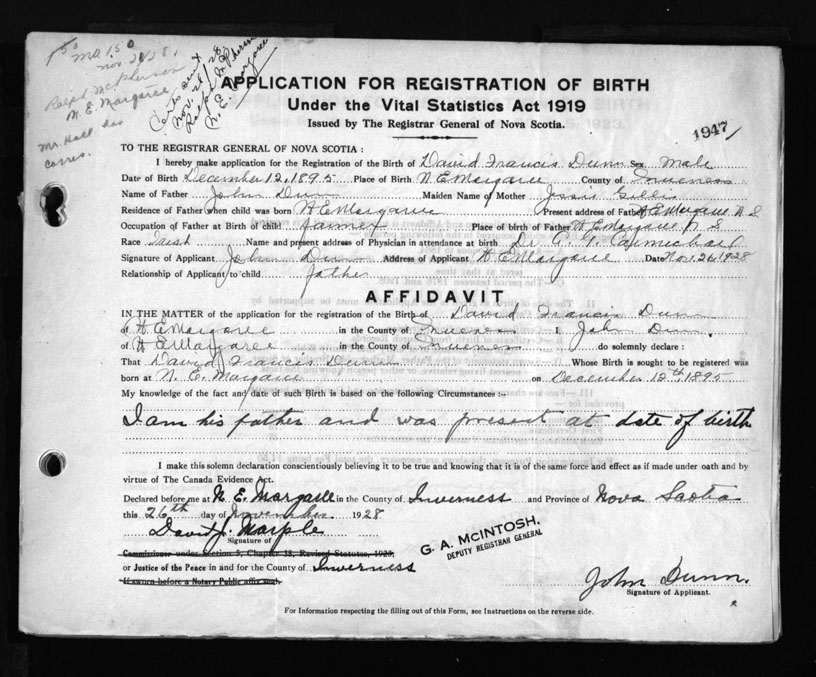 $1.50 M.O. 1.50
Nov 21 28.
Ralph McPherson
N. E. Margaree
Mr Hall has
corres.
Certs sent
Nov. 28/28
Ralph McPherson
N. E. Margaree
APPLICATION FOR REGISTRATION OF BIRTH
Under the Vital Statistics Act 1919
Issued by The Registrar General of Nova Scotia.
1947/
TO THE REGISTRAR GENERAL OF NOVA SCOTIA :
I hereby make application for the Registration of the Birth of David Francis Dunn Sex Male
Date of Birth December 12, 1895 Place of Birth N E Margaree County of Inverness
Name of Father John Dunn Maiden Name of Mother Jessie Gillis
Residence of Father when child was born N E Margaree Present address of Father N E Margaree N S
Occupation of Father at Birth of child farmer Place of birth of Father N E Margaree N S
Race Irish Name and present address of Physician in attendance at birth Dr Carmichael
Signature of Applicant John Dunn Address of Applicant N E Margaree Date Nov. 26, 1928
Relationship of Applicant to child father
AFFIDAVIT
IN THE MATTER of the application for the registration of the Birth of David Francis Dunn
of N E Margaree in the County of Inverness I, John Dunn
of N E Margaree in the County of Inverness do solemnly declare :
That David Francis Dunn Whose Birth is sought to be registered was
born at N. E. Margaree on December 12th, 1895
My knowledge of the fact and date of such Birth is based on the following Circumstances :-
I am his father and was present at date of birth
I make this solemn declaration conscientiously believing it to be true and knowing that it is of the same force and effect as if made under oath and by
virtue of The Canada Evidence Act.
Declared before me at N. E. Margaree in the County of Inverness and Province of Nova Scotia
this 26th day of November 1928
David J. Marple
Signature of
Commissioner under Section 5, Chapter 38, Revised Statutes, 1923,
or Justice of the Peace in and for the County of Inverness
If sworn before a Notary Public affix seal.
G. A. McINTOSH,
DEPUTY REGISTRAR GENERAL
John Dunn.
Signature of Applicant.
For Information respecting the filling out of this Form, see Instructions on the reverse side.